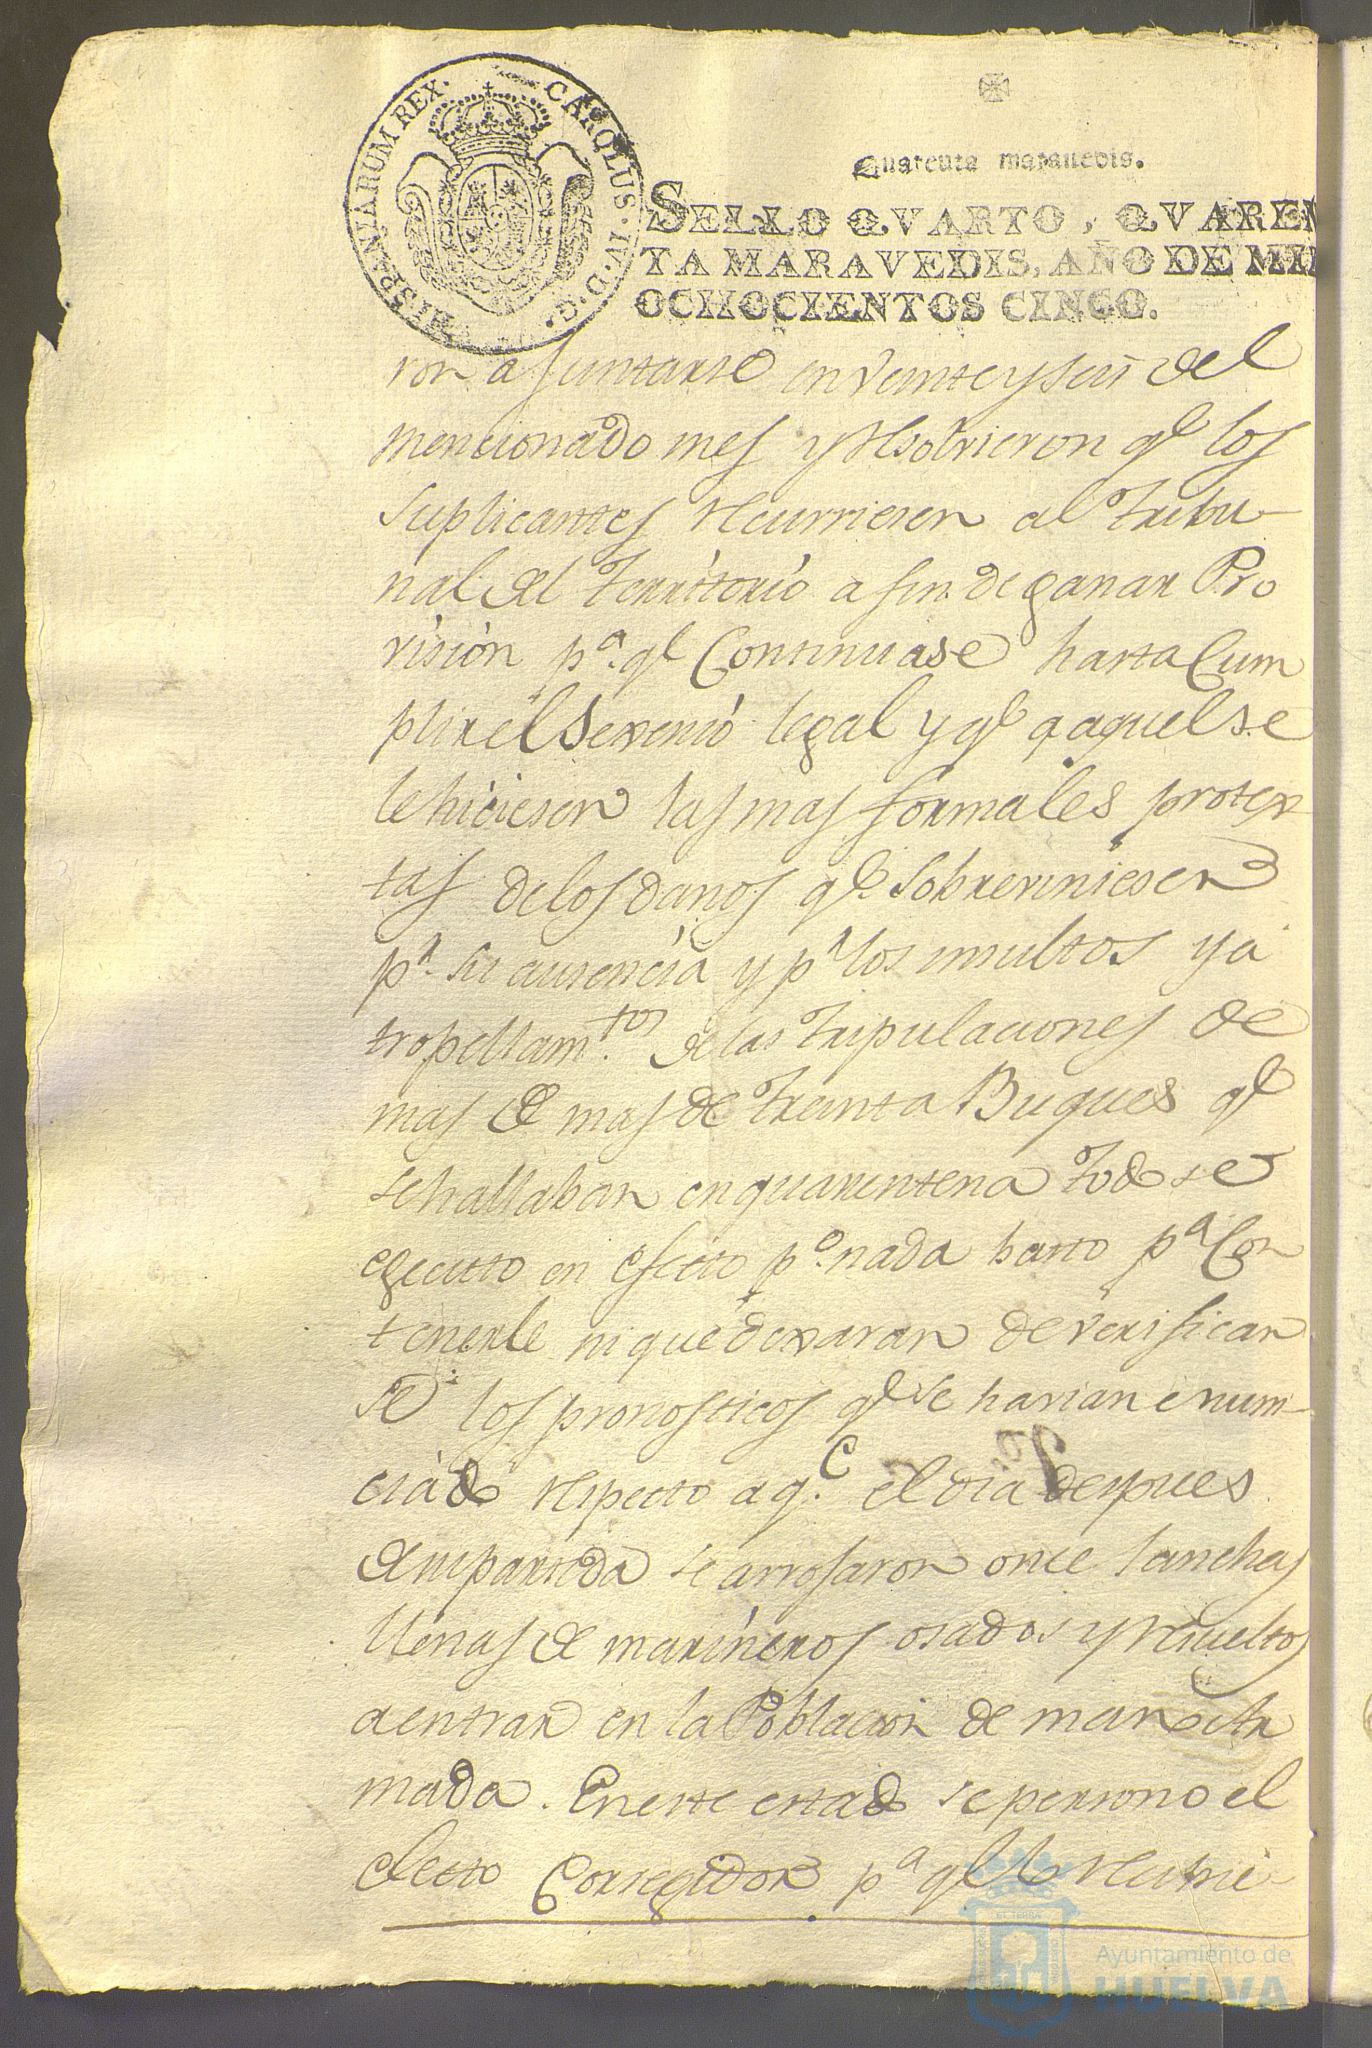 HISPANIARUM REX. CAROLUS·IV·D·G·
Quarenta marauedis.
SELLO QVARTO, QVAREN
TA MARAVEDIS, AÑO DE MIL
OCHOCIENTOS CINCO.
ron a Juntarse en veinte y seis del
mencionado mes y resolvieron qe los
suplicantes recurriesen al Tribu-
nal del territorio a fin de ganar Pro
vision pa. qe Continuase hasta Cum
plir el Sexenio legal y qe a aquel se
le hiciesen las mas formales protex-
tas de los danos qe. sobreviniesen
pr. su ausencia y pr los insultos y a
tropellam.tos de las tripulaciones de
mas de mas de treinta Buques qe
se hallaban en quarentena todo se
egecuto en efecto po. nada basto pa Con
tenerle ni que dexaran de verificar
se los pronosticos qe se havian enun-
ciado respecto a q.e el dia despues
de su partida se arrojaron once lanchas
llenas de marineros osados y resueltos
a entrar en la Poblacion de mano Ar
mada. En este estado se persono el
electo Corregidor pa qe le recivie-
Ayuntamiento de
HUELVA